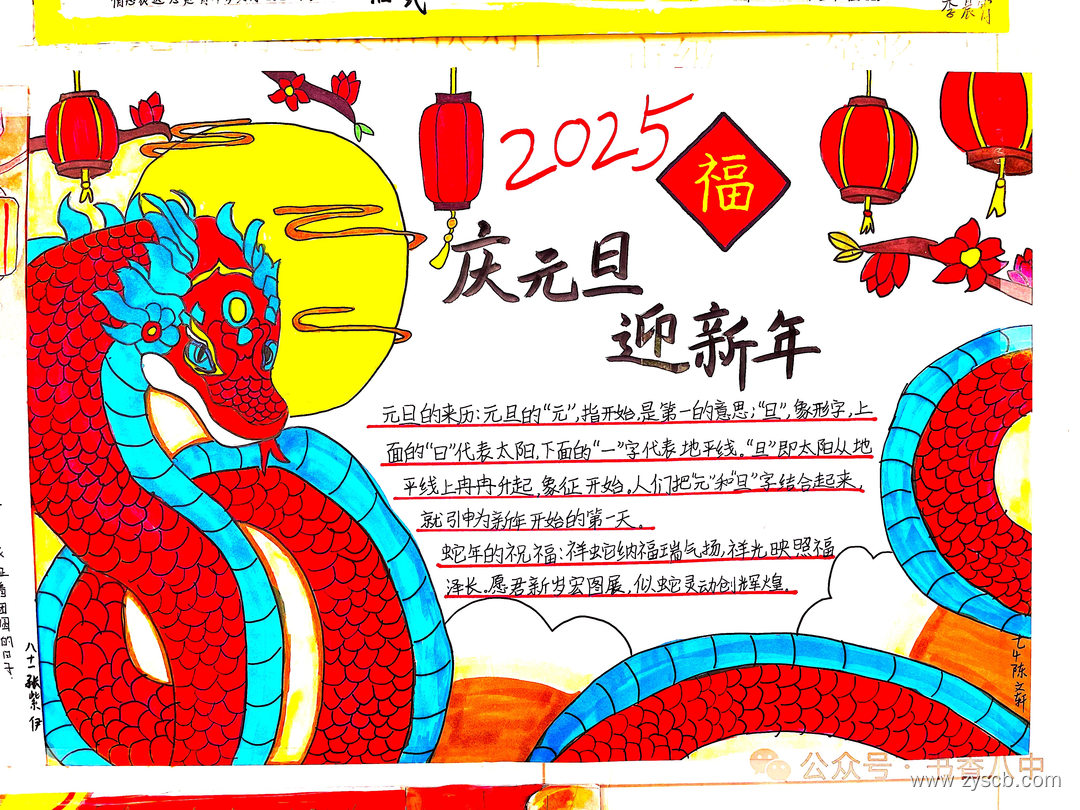 2025
福
庆元旦
迎新年
元旦的来历:元旦的“元”,指开始,是第一的意思;“旦”,象形字,上
面的“日”代表太阳,下面的“一”字代表地平线。“旦”即太阳从地
平线上冉冉升起,象征开始。人们把“元”和“旦”字结合起来,
就引申为新年开始的第一天。
蛇年的祝福:祥蛇纳福瑞气扬,祥光映照福
泽长。愿君新岁宏图展,似蛇灵动创辉煌。
八十一 张紫伊
陈文轩
公众号·书香八中
www.zyscb.com